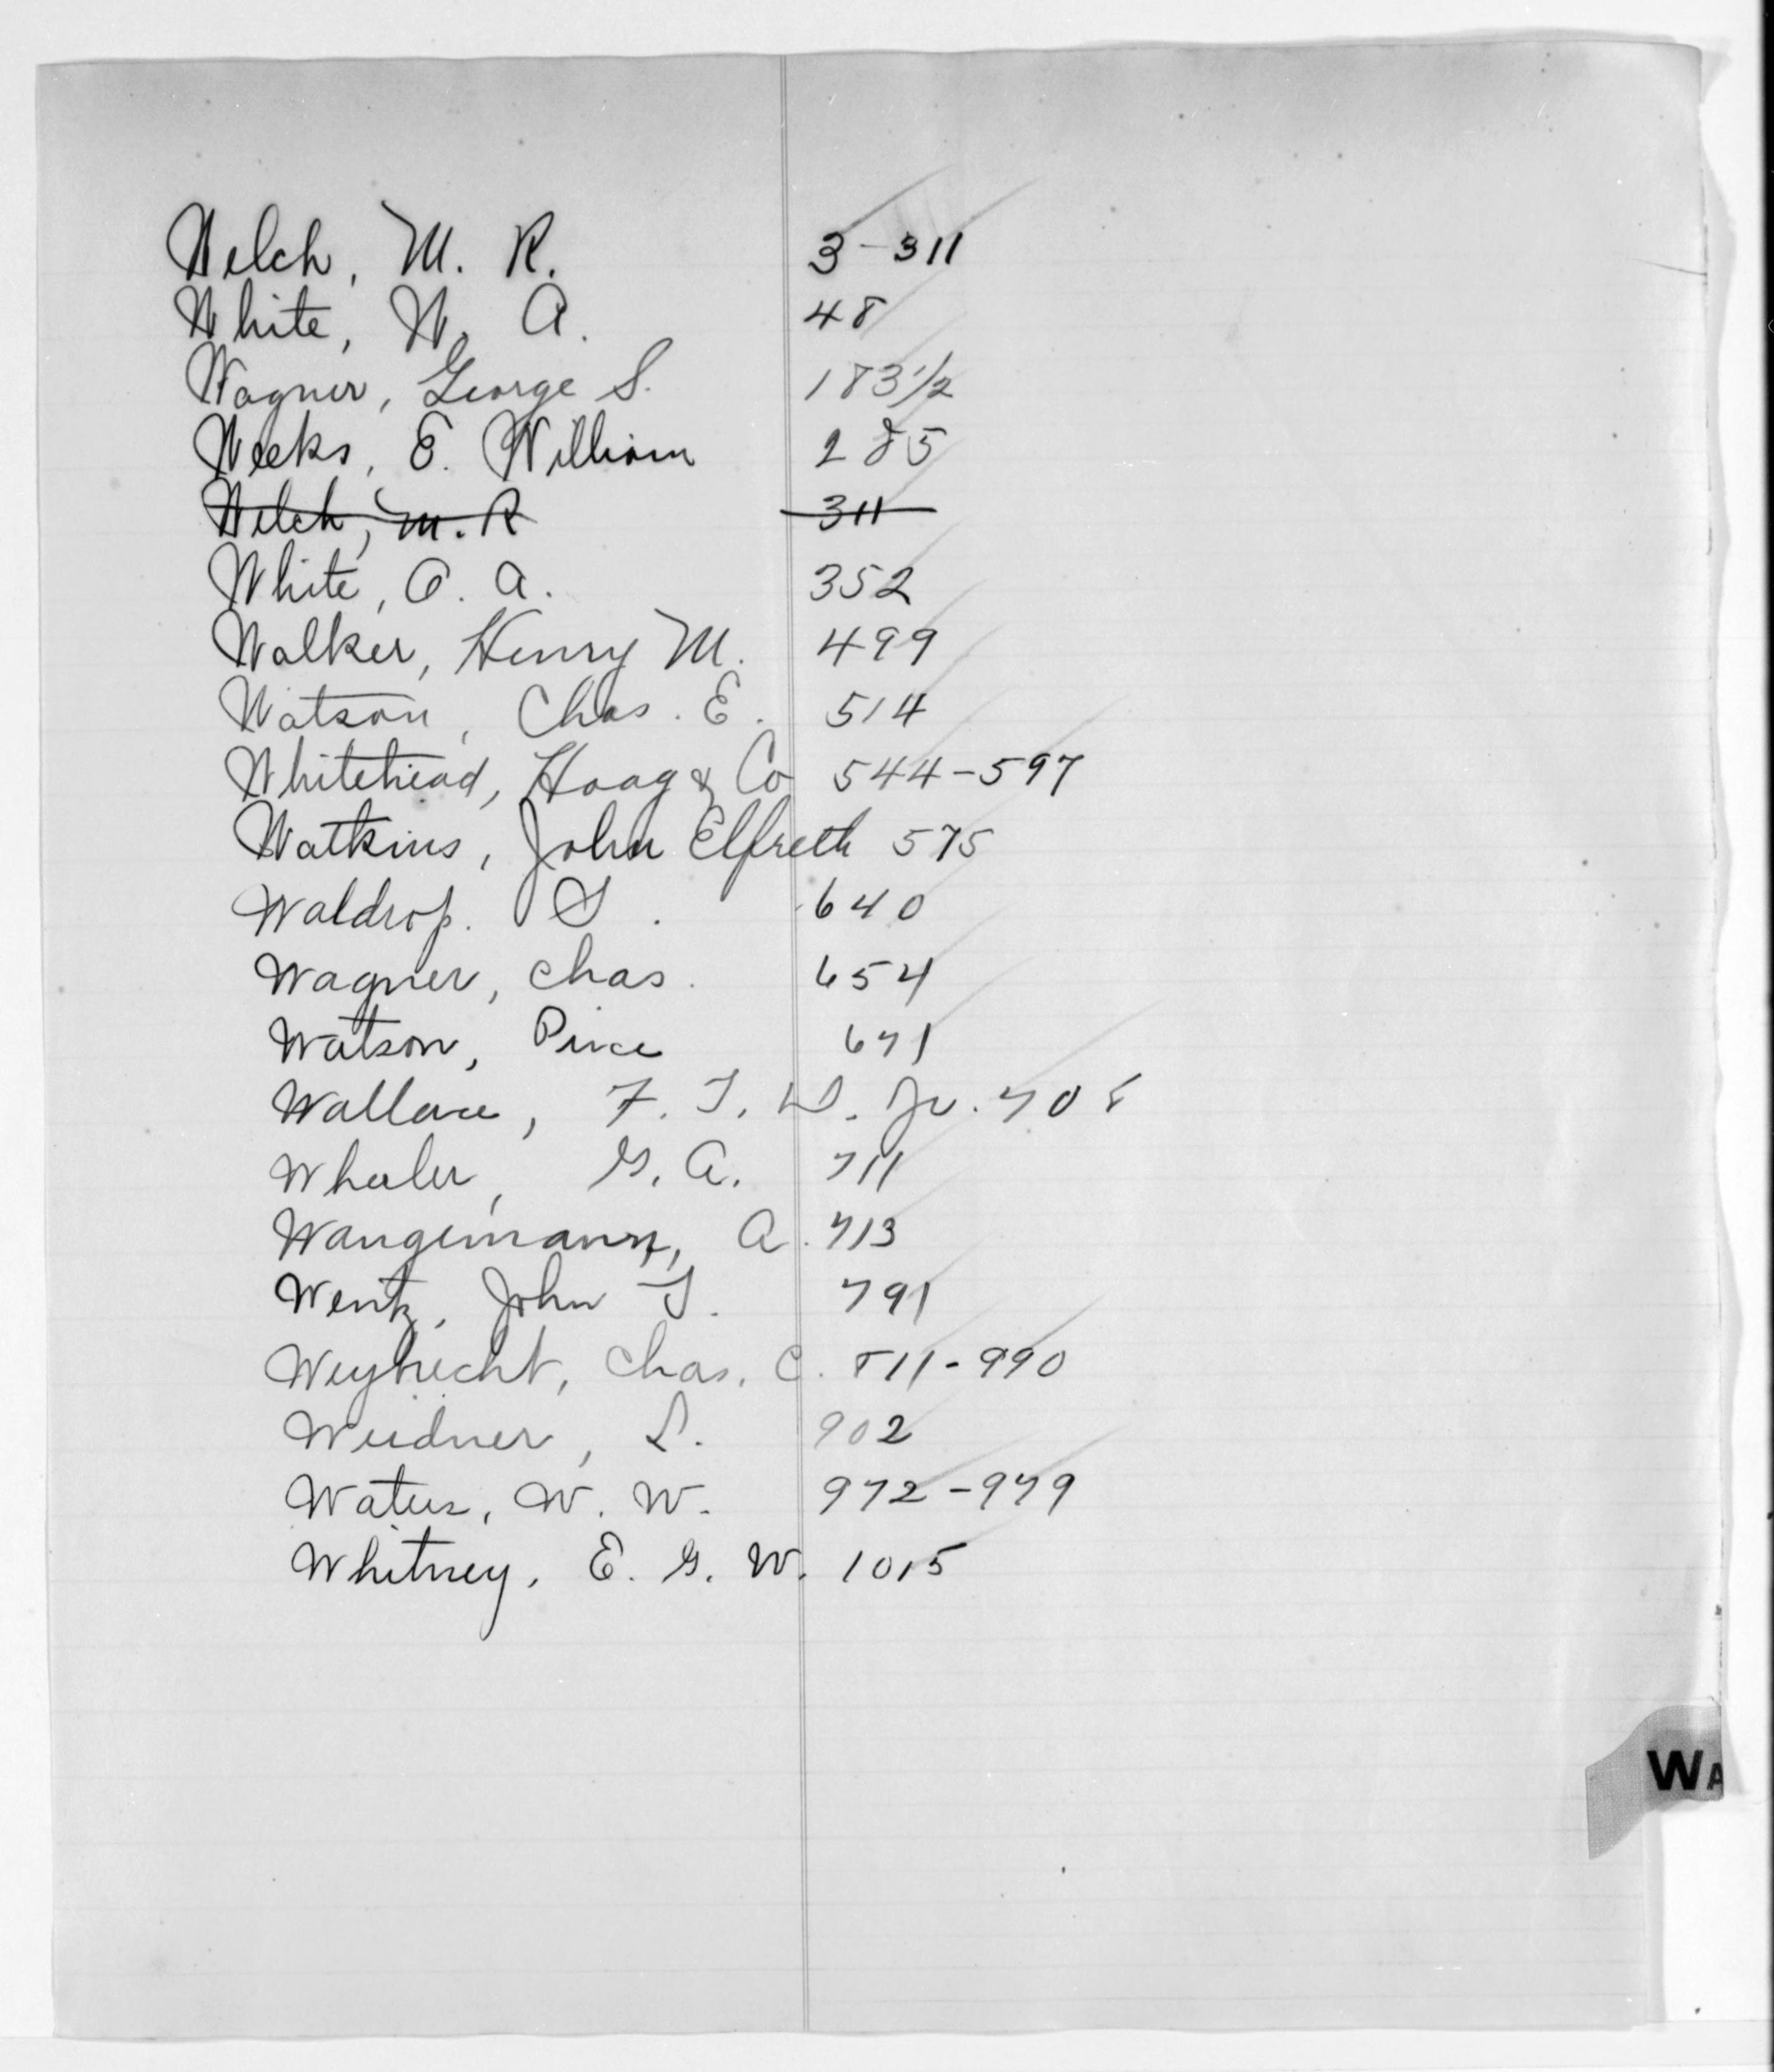 Welch, M. R. 3-311
White, W. A. 48
Wagner, George S. 183 1/2
Weeks, E. William 285
Welch, M. R 311
White, O. A. 352
Walker, Henry M. 499
Watson, Chas. E. 514
Whitehead, Hoag & Co 544-597
Watkins, John Elfreth 575
Waldrop. S. 640
Wagner, Chas. 654
Watson, 671
Wallace, F. T. D. Jr. 708
Wheeler, G. A. 711
Wangemann, A. 713
Wentz, John T. 791
Weybrecht, Chas. C. 811-990
Weidner, L. 902
Waters, W. W. 972-979
Whitney, E. G. W. 1015
WA